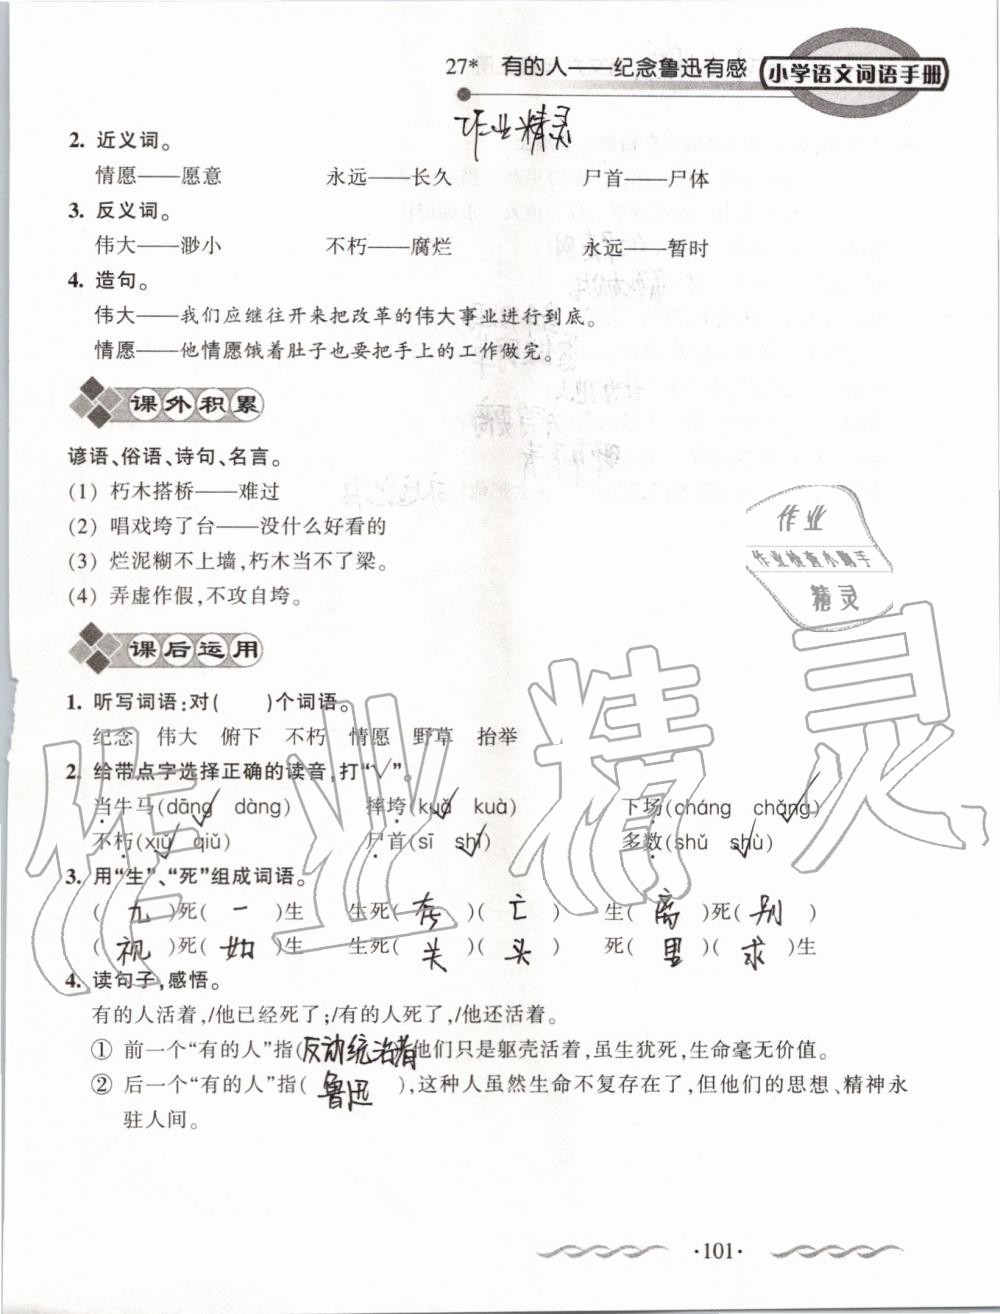 27* 有的人——纪念鲁迅有感 小学语文词语手册
作业精灵
2. 近义词。
情愿——愿意 永远——长久 尸首——尸体
3. 反义词。
伟大——渺小 不朽——腐烂 永远——暂时
4. 造句。
伟大——我们应继往开来把改革的伟大事业进行到底。
情愿——他情愿饿着肚子也要把手上的工作做完。
课外积累
谚语、俗语、诗句、名言。
(1) 朽木搭桥——难过
(2) 唱戏垮了台——没什么好看的
(3) 烂泥糊不上墙,朽木当不了梁。
(4) 弄虚作假,不攻自垮。
作业
作业检查小助手
精灵
课后运用
1. 听写词语:对( )个词语。
纪念 伟大 俯下 不朽 情愿 野草 抬举
2. 给带点字选择正确的读音,打“√”。
当牛马(dāng√ dàng) 摔垮(kuǎ√ kuà) 下场(cháng chǎng√)
不朽(xiǔ√ qiǔ) 尸首(sī shī√) 多数(shǔ shù√)
3. 用“生”、“死”组成词语。
(九)死(一)生 生死(存)(亡) 生(离)死(别)
(视)死(如)生 生死(关)(头) 死(里)(求)生
4. 读句子,感悟。
有的人活着,/他已经死了;/有的人死了,/他还活着。
① 前一个“有的人”指(反动统治者他们只是躯壳活着,虽生犹死,生命毫无价值。
② 后一个“有的人”指(鲁迅),这种人虽然生命不复存在了,但他们的思想、精神永
驻人间。
作业精灵
·101·